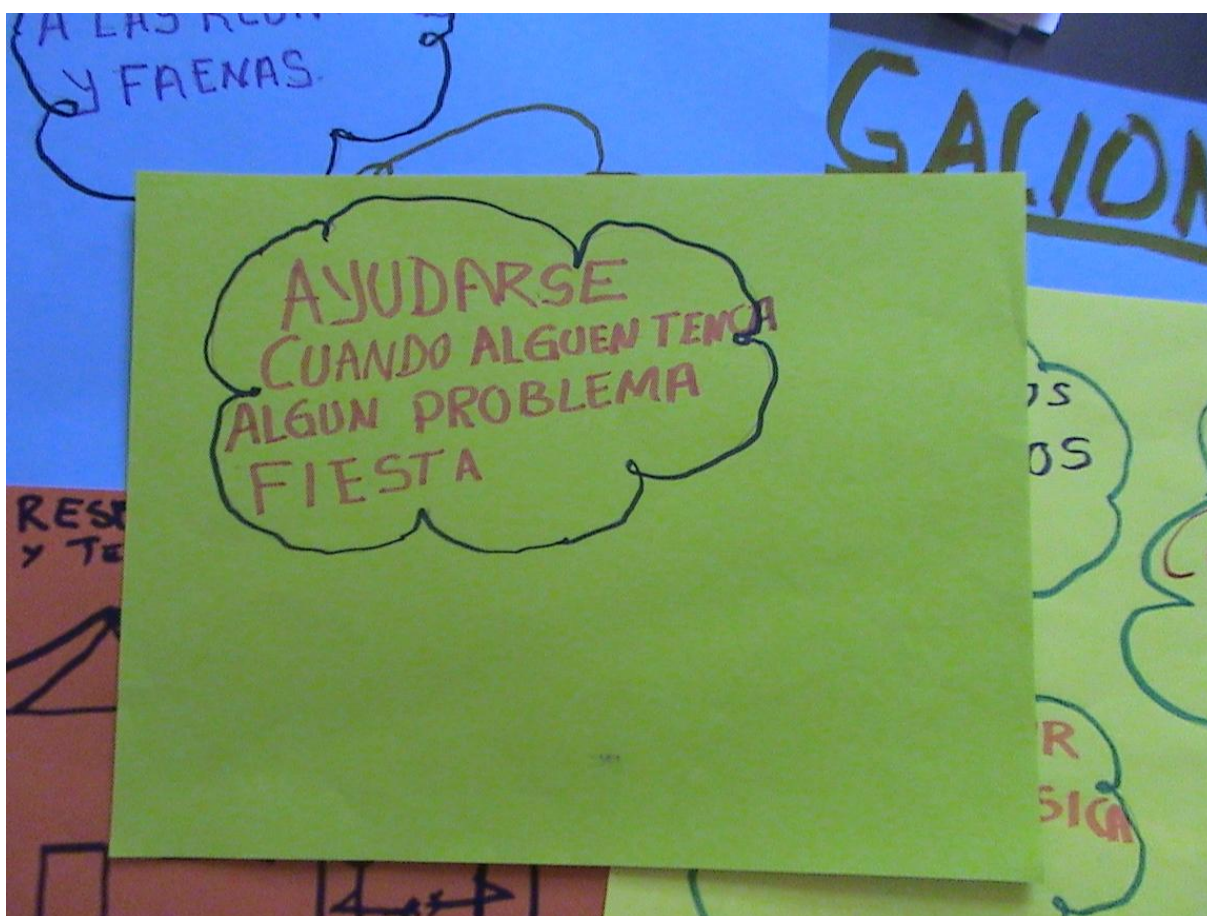 A LAS
Y FAENAS.
GACION
AYUDARSE
CUANDO ALGUEN TENGA
ALGUN PROBLEMA
FIESTA
OS
OS
RESP
Y TE
R
SICA